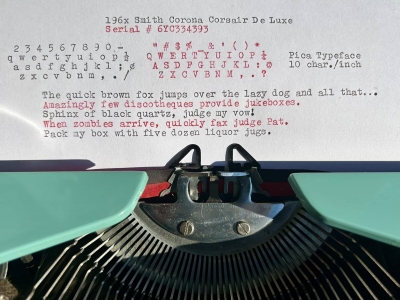 196x Smith Corona Corsair De Luxe
Serial # 6YC334393
2 3 4 5 6 7 8 9 0 - " # $ % _ & ' ( ) *
q w e r t y u i o p ½ Q W E R T Y U I O P ¼ Pica Typeface
a s d f g h j k l ; A S D F G H J K L : @ 10 char./inch
z x c v b n m , . / Z X C V B N M , . ?
The quick brown fox jumps over the lazy dog and all that...
Amazingly few discotheques provide jukeboxes.
Sphinx of black quartz, judge my vow!
When zombies arrive, quickly fax judge Pat.
Pack my box with five dozen liquor jugs.